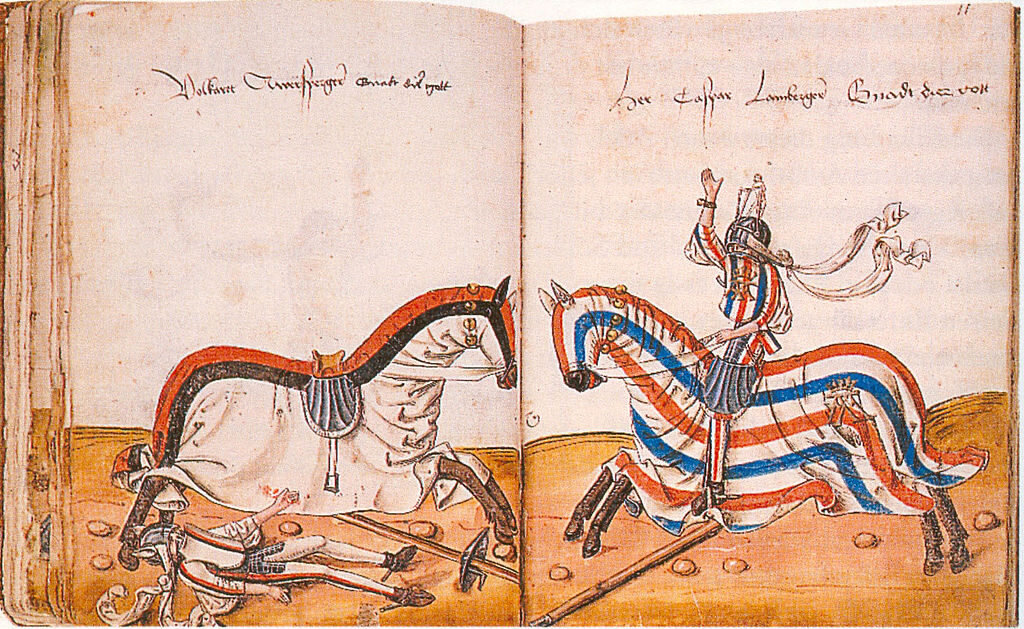 Volkart Awersperger Gnadt dir gott
Her Caspar Lamberger Gnadt dier gott
11